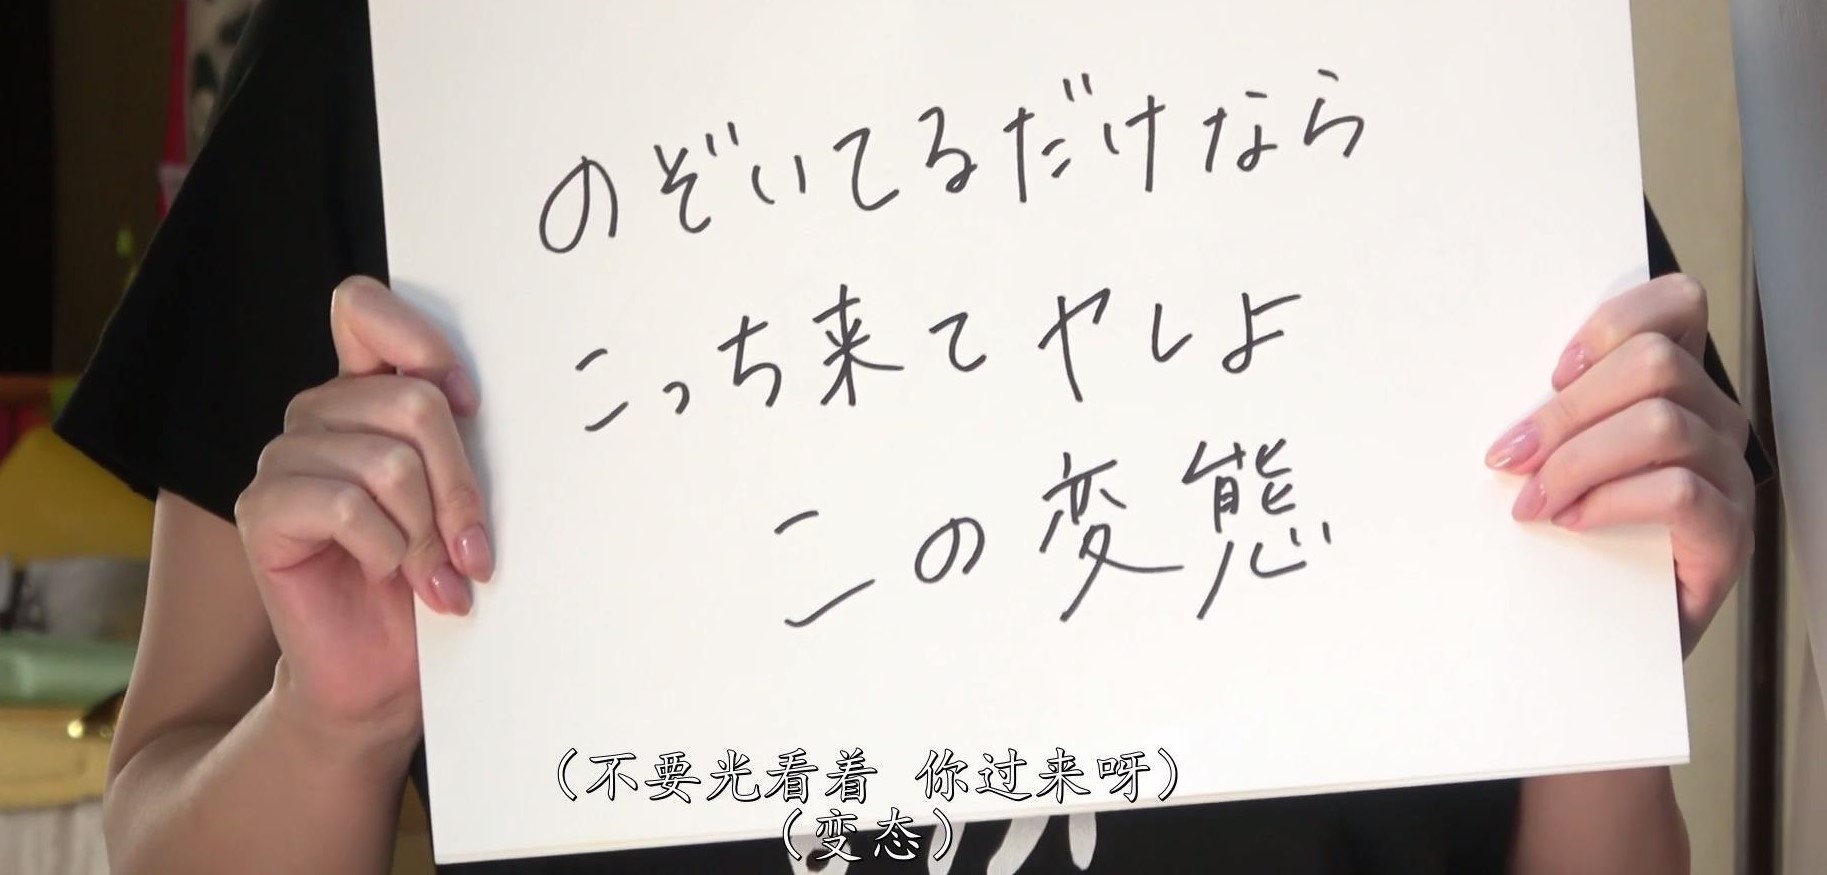 のぞいてるだけなら
こっち来てヤしよ
この変態
（不要光看着 你过来呀）
（变态）